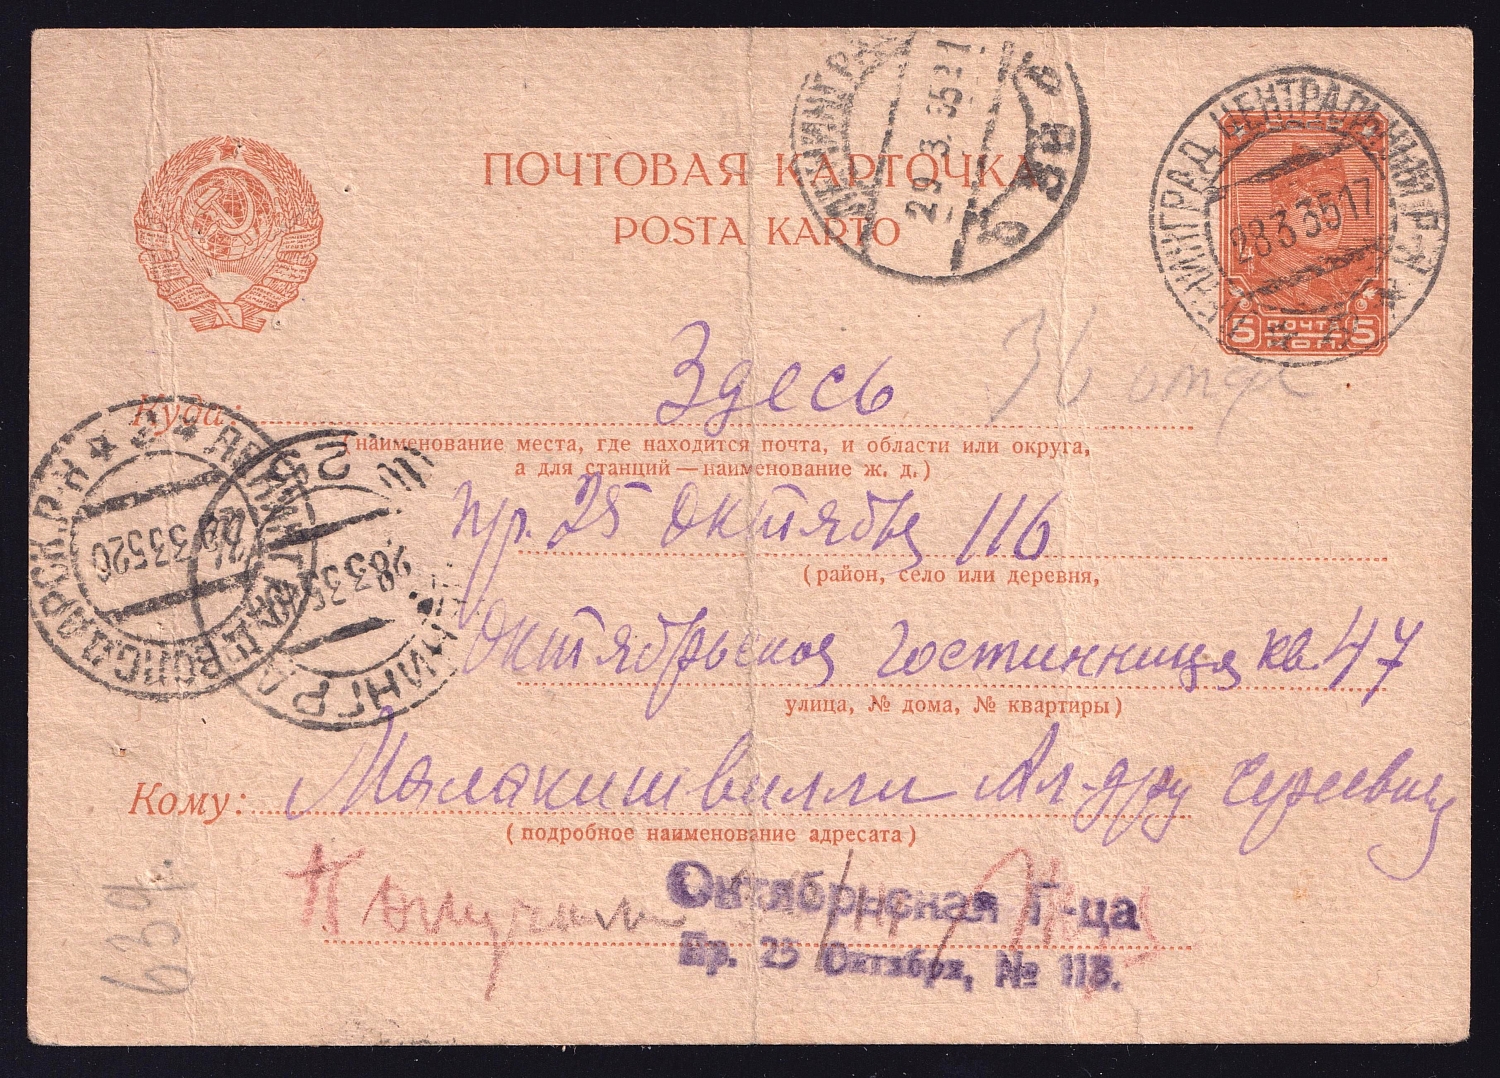 ПОЧТОВАЯ КАРТОЧКА
POSTA KARTO
ЛЕНИНГРАД
29.3.3521
ЛЕНИНГРАД ЦЕНТРАЛЬНЫЙ Р-Н
28333517
5 ПОЧТА 5
КОП.
Куда: Здесь
(наименование места, где находится почта, и области или округа,
а для станций — наименование ж. д.)
пр. 25 Октября 116
(район, село или деревня,
Октябрьская Гостинница кв. 47
улица, № дома, № квартиры)
Кому: Малакишвилли Ал-дру
(подробное наименование адресата)
ЛЕНИНГРАД ВОЛОДАРСК. Р-Н
29333520
ЛЕНИНГРАД
28335
Октябрьская Г-ца
Пр. 25 Октября, № 118.
639.